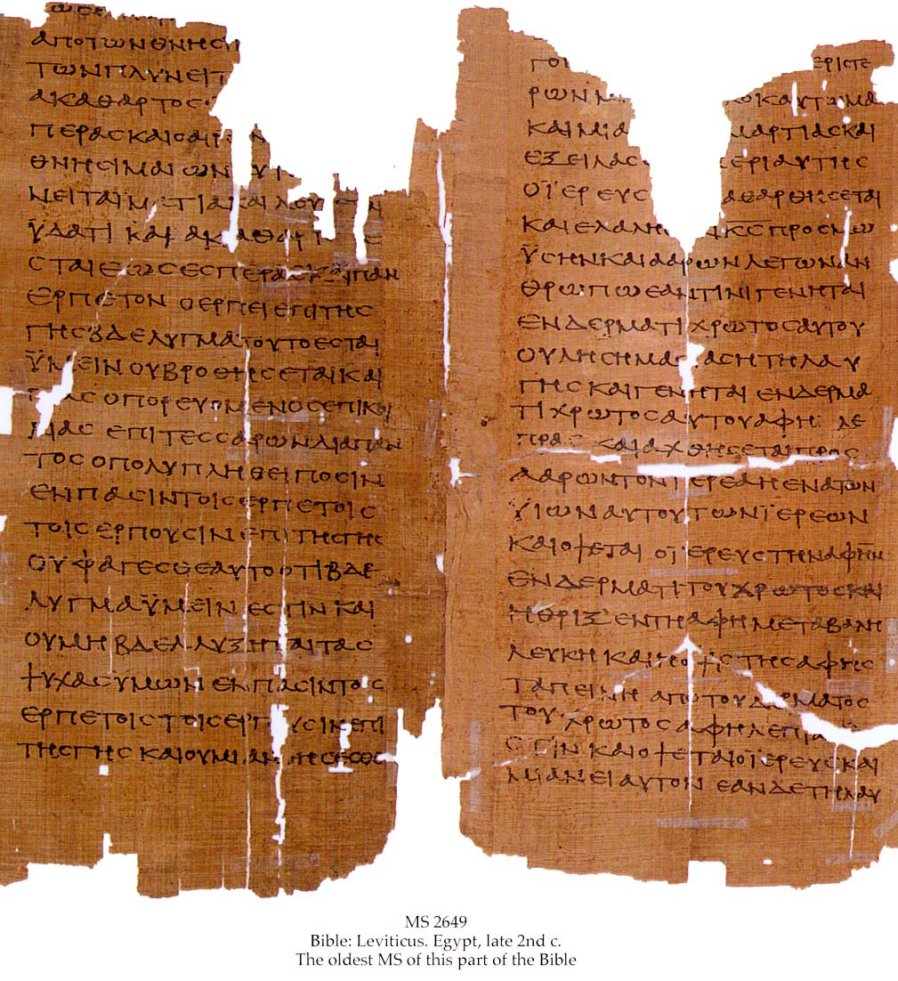 ΑΠΟΤΩΝΘΝΗCΙ
ΤΩΝΠΛΥΝΕΙΤ
ΑΚΑΘΑΡΤΟC
ΠΕΡΑCΚΑΙΟΑΙΡ
ΘΝΗCΙΜΑΙΩΝ
ΝΕΙΤΑΙΜΑΤΙΑΚΑΙΛΟΥ
ΫΔΑΤΙ ΚΑΙ ΑΚΑΘΑΡΤ
CΤΑΙΕΩCΕCΠΕΡΑCΚΑΙΠΑΝ
ΕΡΠΕΤΟΝ ΟΕΡΠΕΙΕΠΙΤΗC
ΓΗCΒΔΕΛΥΓΜΑΤΟΥΤΟΕCΤΑΙ
ΫΜΕΙΝΟΥΒΡΟΘΗCΕΤΑΙΚΑΙ
ΠΑCΟΠΟΡΕΥΟΜΕΝΟCΕΠΙΚΟΙ
ΛΙΑC ΕΠΙΤΕCCΑΡΩΝΔΙΑΠΑΝ
ΤΟCΟΠΟΛΥΠΛΗΘΕΙΠΟCΙΝ
ΕΝΠΑCΙΝΤΟΙCΕΡΠΕΤΟΙC
ΤΟΙCΕΡΠΟΥCΙΝΕΠΙΤΗCΓΗC
ΟΥΦΑΓΕCΘΕΑΥΤΟΟΤΙΒΔΕ
ΛΥΓΜΑΫΜΕΙΝ ΕCΤΙΝ ΚΑΙ
ΟΥΜΗ ΒΔΕΛΛΥΞΗΤΑΙΤΑC
ΨΥΧΑCΥΜΩΝ ΕΝΠΑCΙΝΤΟΙC
ΕΡΠΕΤΟΙCΤΟΙCΕΡΠΟΥCΙΝΕΠΙ
ΤΗCΓΗC ΚΑΙΟΥΜΙΑΝΘΗCΕCΘΕ
ΓΟ ΕΡΙCΤΕ
ΡΩΝ ΚΑΥΤΩΜΑ
ΚΑΙΜΙΑ ΜΑΡΤΙΑCΚΑΙ
ΕΞΕΙΛΑC ΠΕΡΙΑΥΤΗC
ΟΪΕΡΕΥC ΚΑΘΑΡΘΗCΕΤΑΙ
ΚΑΙΕΛΑΛΗ ΚC ΠΡΟCΜΩ
ΫCΗΝΚΑΙΑΑΡΩΝΛΕΓΩΝΑΝ
ΘΡΩΠΩΕΑΝΤΙΝΙΓΕΝΗΤΑΙ
ΕΝΔΕΡΜΑΤΙΧΡΩΤΟCΑΥΤΟΥ
ΟΥΛΗCΗΜΑCΙΑCΗΤΗΛΑΥ
ΓΗCΚΑΙΓΕΝΗΤΑΙ ΕΝΔΕΡΜΑ
ΤΙΧΡΩΤΟCΑΥΤΟΥΑΦΗ ΛΕ
ΠΡΑC ΚΑΙΑΧΘΗCΕΤΑΙΠΡΟC
ΑΑΡΩΝΤΟΝΪΕΡΕΑΗΕΝΑΤΩΝ
ΫΙΩΝΑΥΤΟΥΤΩΝΪΕΡΕΩΝ
ΚΑΙΟΨΕΤΑΙ ΟΪΕΡΕΥCΤΗΝΑΦΗΝ
ΕΝΔΕΡΜΑΤΙΤΟΥΧΡΩΤΟCΚΑΙ
ΗΘΡΙΞΕΝΤΗΑΦΗΜΕΤΑΒΑΛΗ
ΛΕΥΚΗ ΚΑΙΗΟΨΙCΤΗCΑΦΗC
ΤΑΠΕΙΝΗ ΑΠΟΤΟΥΔΕΡΜΑΤΟC
ΤΟΥΧΡΩΤΟCΑΦΗΛΕΠΡΑ
CΤΙΝ ΚΑΙΟΨΕΤΑΙΟΪΕΡΕΥCΚΑΙ
ΜΙΑΝΕΙΑΥΤΟΝ ΕΑΝΔΕΤΗΛΑΥ
MS 2649
Bible: Leviticus. Egypt, late 2nd c.
The oldest MS of this part of the Bible